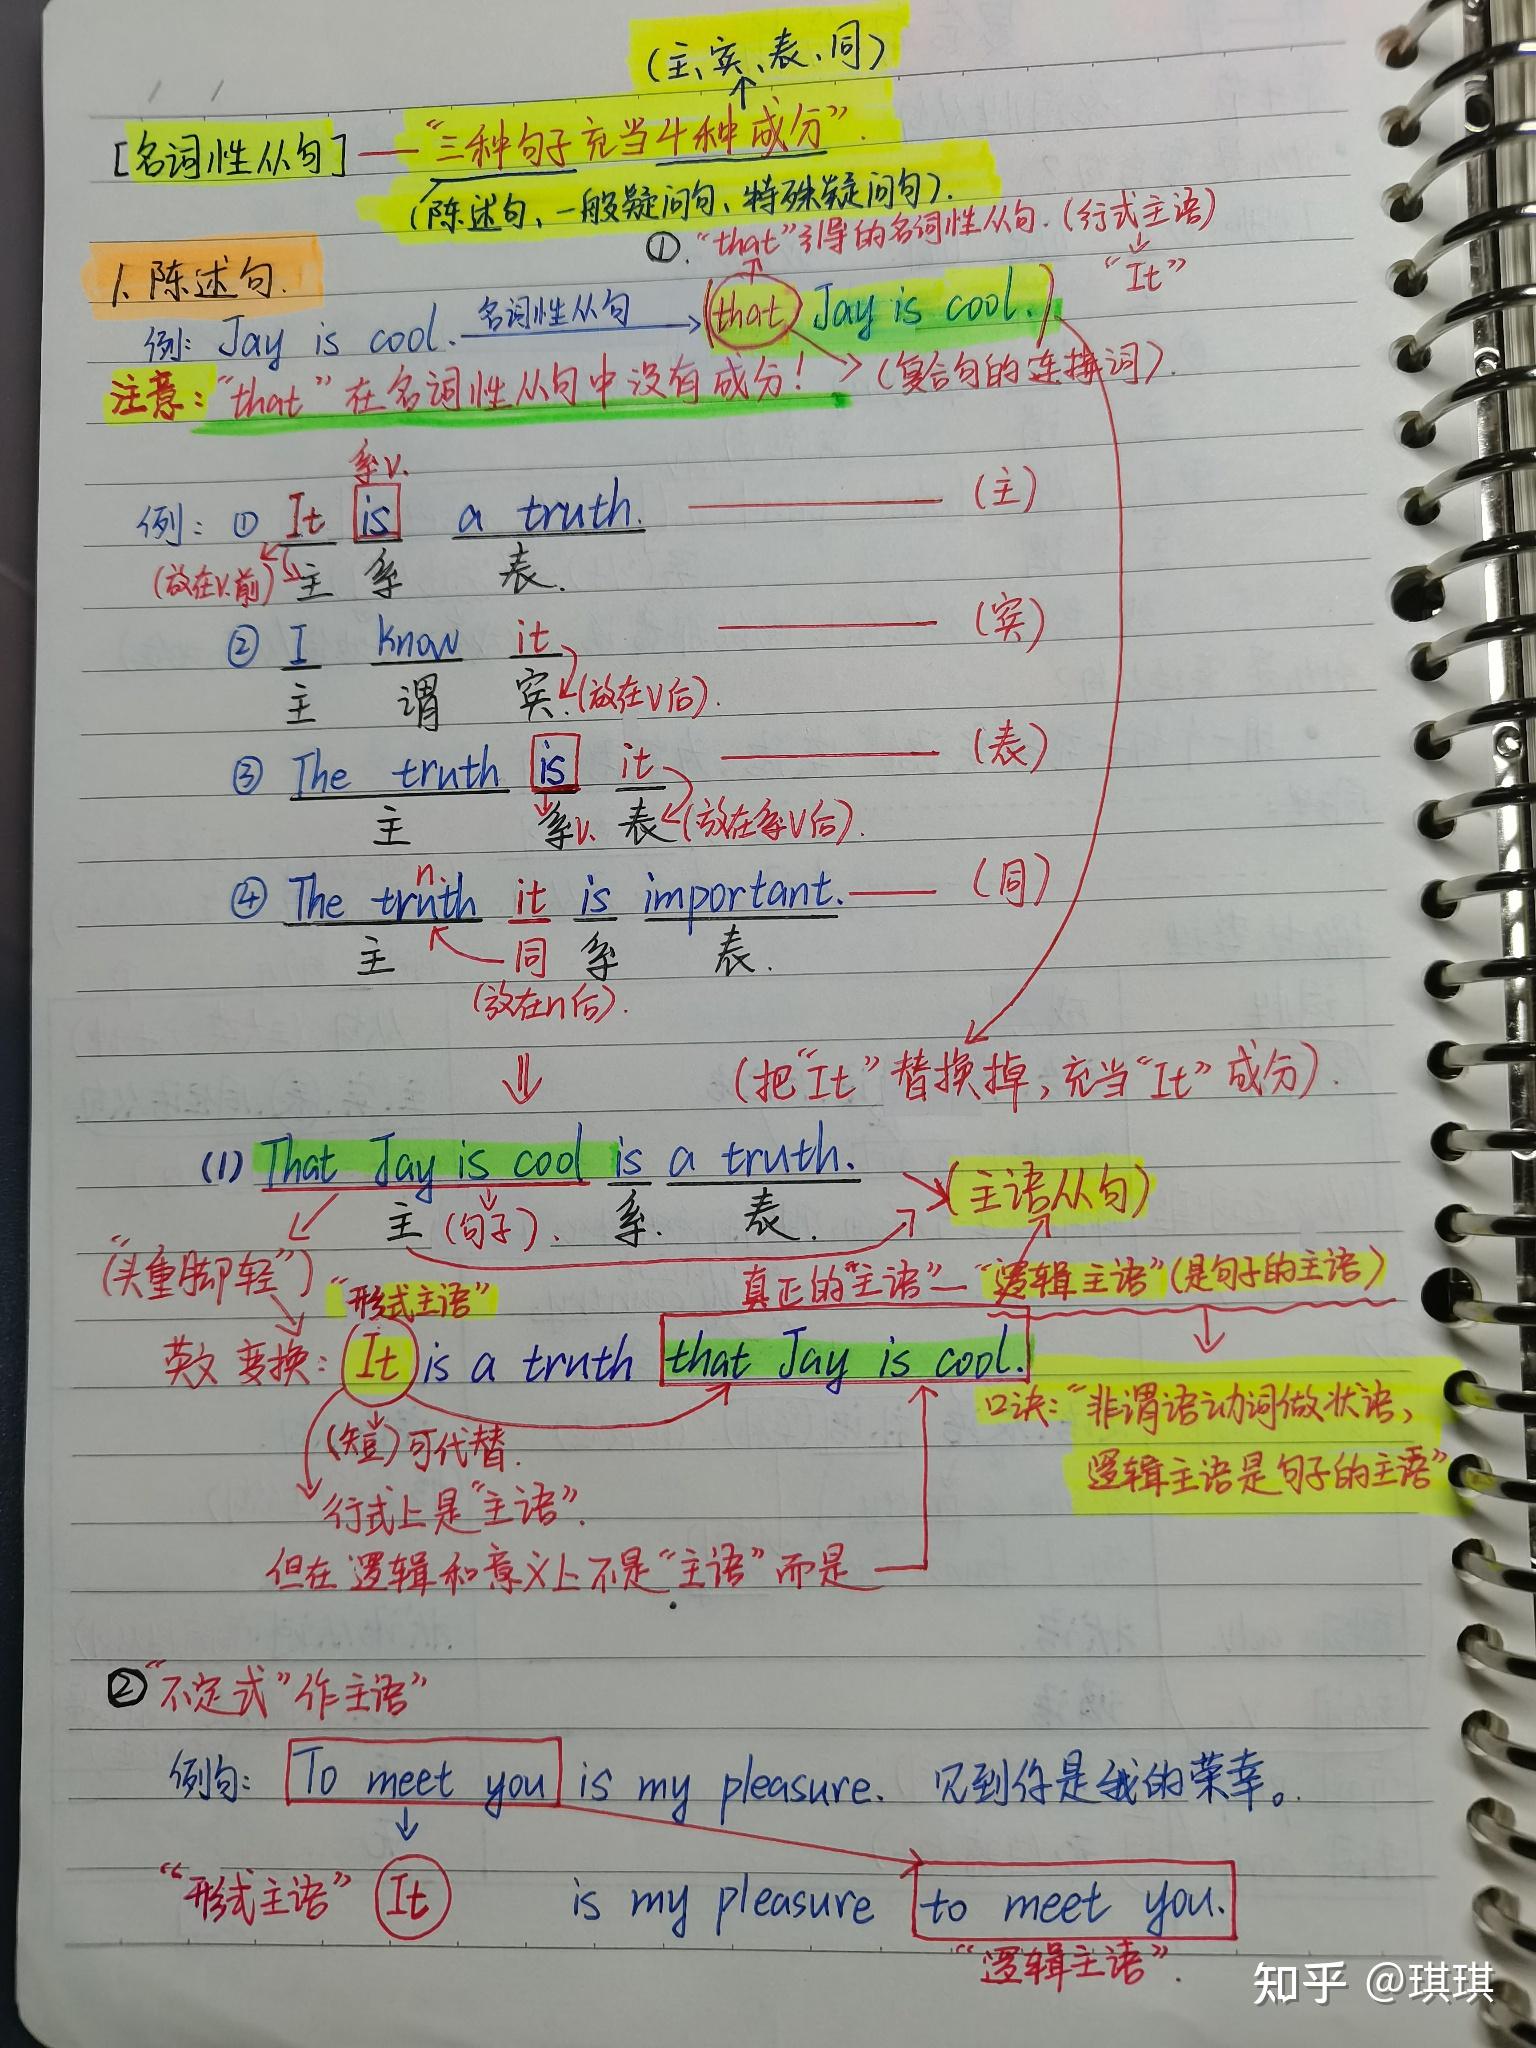 (主、宾、表、同)
[名词性从句]——“三种句子充当4种成分”.
(陈述句、一般疑问句、特殊疑问句).
①. “that”引导的名词性从句.(行式主语)
“It”
1. 陈述句.
例: Jay is cool. 名词性从句 (that Jay is cool.)
注意: “that”在名词性从句中没有成分! (复合句的连接词).
系v.
例: ① It is a truth. (主)
(放在v.前) 主 系 表.
② I know it (宾)
主 谓 宾. (放在V后).
③ The truth is it (表)
主 系v. 表 (放在系V后).
n.
④ The truth it is important. (同)
主 同 系 表.
(放在n后).
(把“It”替换掉,充当“It”成分).
(1) That Jay is cool is a truth.
主 (句子). 系. 表. (主语从句)
(“头重脚轻”) “形式主语” 真正的“主语”—“逻辑主语”(是句子的主语)
英文变换: It is a truth that Jay is cool.
(短)可代替. 口诀:“非谓语动词做状语,
行式上是“主语”. 逻辑主语是句子的主语”
但在逻辑和意义上不是“主语”而是
② “不定式”作主语”
例句: To meet you is my pleasure. 见到你是我的荣幸。
“形式主语” It is my pleasure to meet you.
“逻辑主语”.
知乎 @琪琪